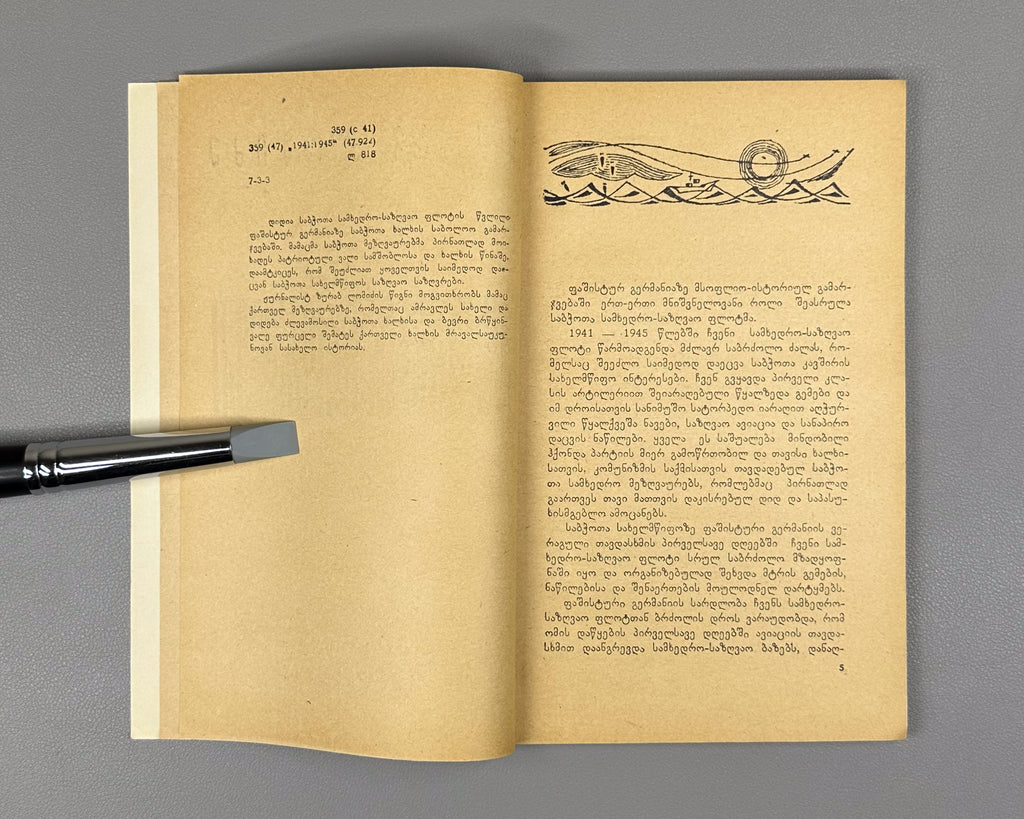 359 (c 41)
359 (47) „1941:1945“ (47.922)
ლ 818
7-3-3
დიდია საბჭოთა სამხედრო-საზღვაო ფლოტის წვლილი
ფაშისტურ გერმანიაზე საბჭოთა ხალხის საბოლოო გამარ-
ჯვებაში. მამაცმა საბჭოთა მეზღვაურებმა პირნათლად მოი-
ხადეს პატრიოტული ვალი სამშობლოსა და ხალხის წინაშე,
დაამტკიცეს, რომ შეუძლიათ ყოველთვის საიმედოდ დაი-
ცვან საბჭოთა სახელმწიფოს საზღვაო საზღვრები.
ჟურნალისტ ზურაბ ლომიძის წიგნი მოგვითხრობს მამაც
ქართველ მეზღვაურებზე, რომელთაც ამრავლეს სახელი და
დიდება ძლევამოსილი საბჭოთა ხალხისა და ბევრი ბრწყინ-
ვალე ფურცელი შემატეს ქართველი ხალხის მრავალსაუკუ-
ნოვან სასახელო ისტორიას.
ფაშისტურ გერმანიაზე მსოფლიო-ისტორიულ გამარ-
ჯვებაში ერთ-ერთი მნიშვნელოვანი როლი შეასრულა
საბჭოთა სამხედრო-საზღვაო ფლოტმა.
1941 — 1945 წლებში ჩვენი სამხედრო-საზღვაო
ფლოტი წარმოადგენდა მძლავრ საბრძოლო ძალას, რო-
მელსაც შეეძლო საიმედოდ დაეცვა საბჭოთა კავშირის
სახელმწიფო ინტერესები. ჩვენ გვყავდა პირველი კლა-
სის არტილერიით შეიარაღებული წყალზედა გემები და
იმ დროისათვის სანიმუშო სატორპედო იარაღით აღჭურ-
ვილი წყალქვეშა ნავები, საზღვაო ავიაცია და სანაპირო
დაცვის ნაწილები. ყველა ეს საშუალება მინდობილი
ჰქონდა პარტიის მიერ გამოწრთობილ და თავისი ხალხი-
სათვის, კომუნიზმის საქმისათვის თავდადებულ საბჭო-
თა სამხედრო მეზღვაურებს, რომლებმაც პირნათლად
გაართვეს თავი მათთვის დაკისრებულ დიდ და საპასუ-
ხისმგებლო ამოცანებს.
საბჭოთა სახელმწიფოზე ფაშისტური გერმანიის ვე-
რაგული თავდასხმის პირველსავე დღეებში ჩვენი სამ-
ხედრო-საზღვაო ფლოტი სრულ საბრძოლო მზადყოფ-
ნაში იყო და ორგანიზებულად შეხვდა მტრის გემების,
ნაწილებისა და შენაერთების მოულოდნელ დარტყმებს.
ფაშისტური გერმანიის სარდლობა ჩვენს სამხედრო-
საზღვაო ფლოტთან ბრძოლის დროს ვარაუდობდა, რომ
ომის დაწყების პირველსავე დღეებში ავიაციის თავდა-
სხმით დაანგრევდა სამხედრო-საზღვაო ბაზებს, დანაღ-
5